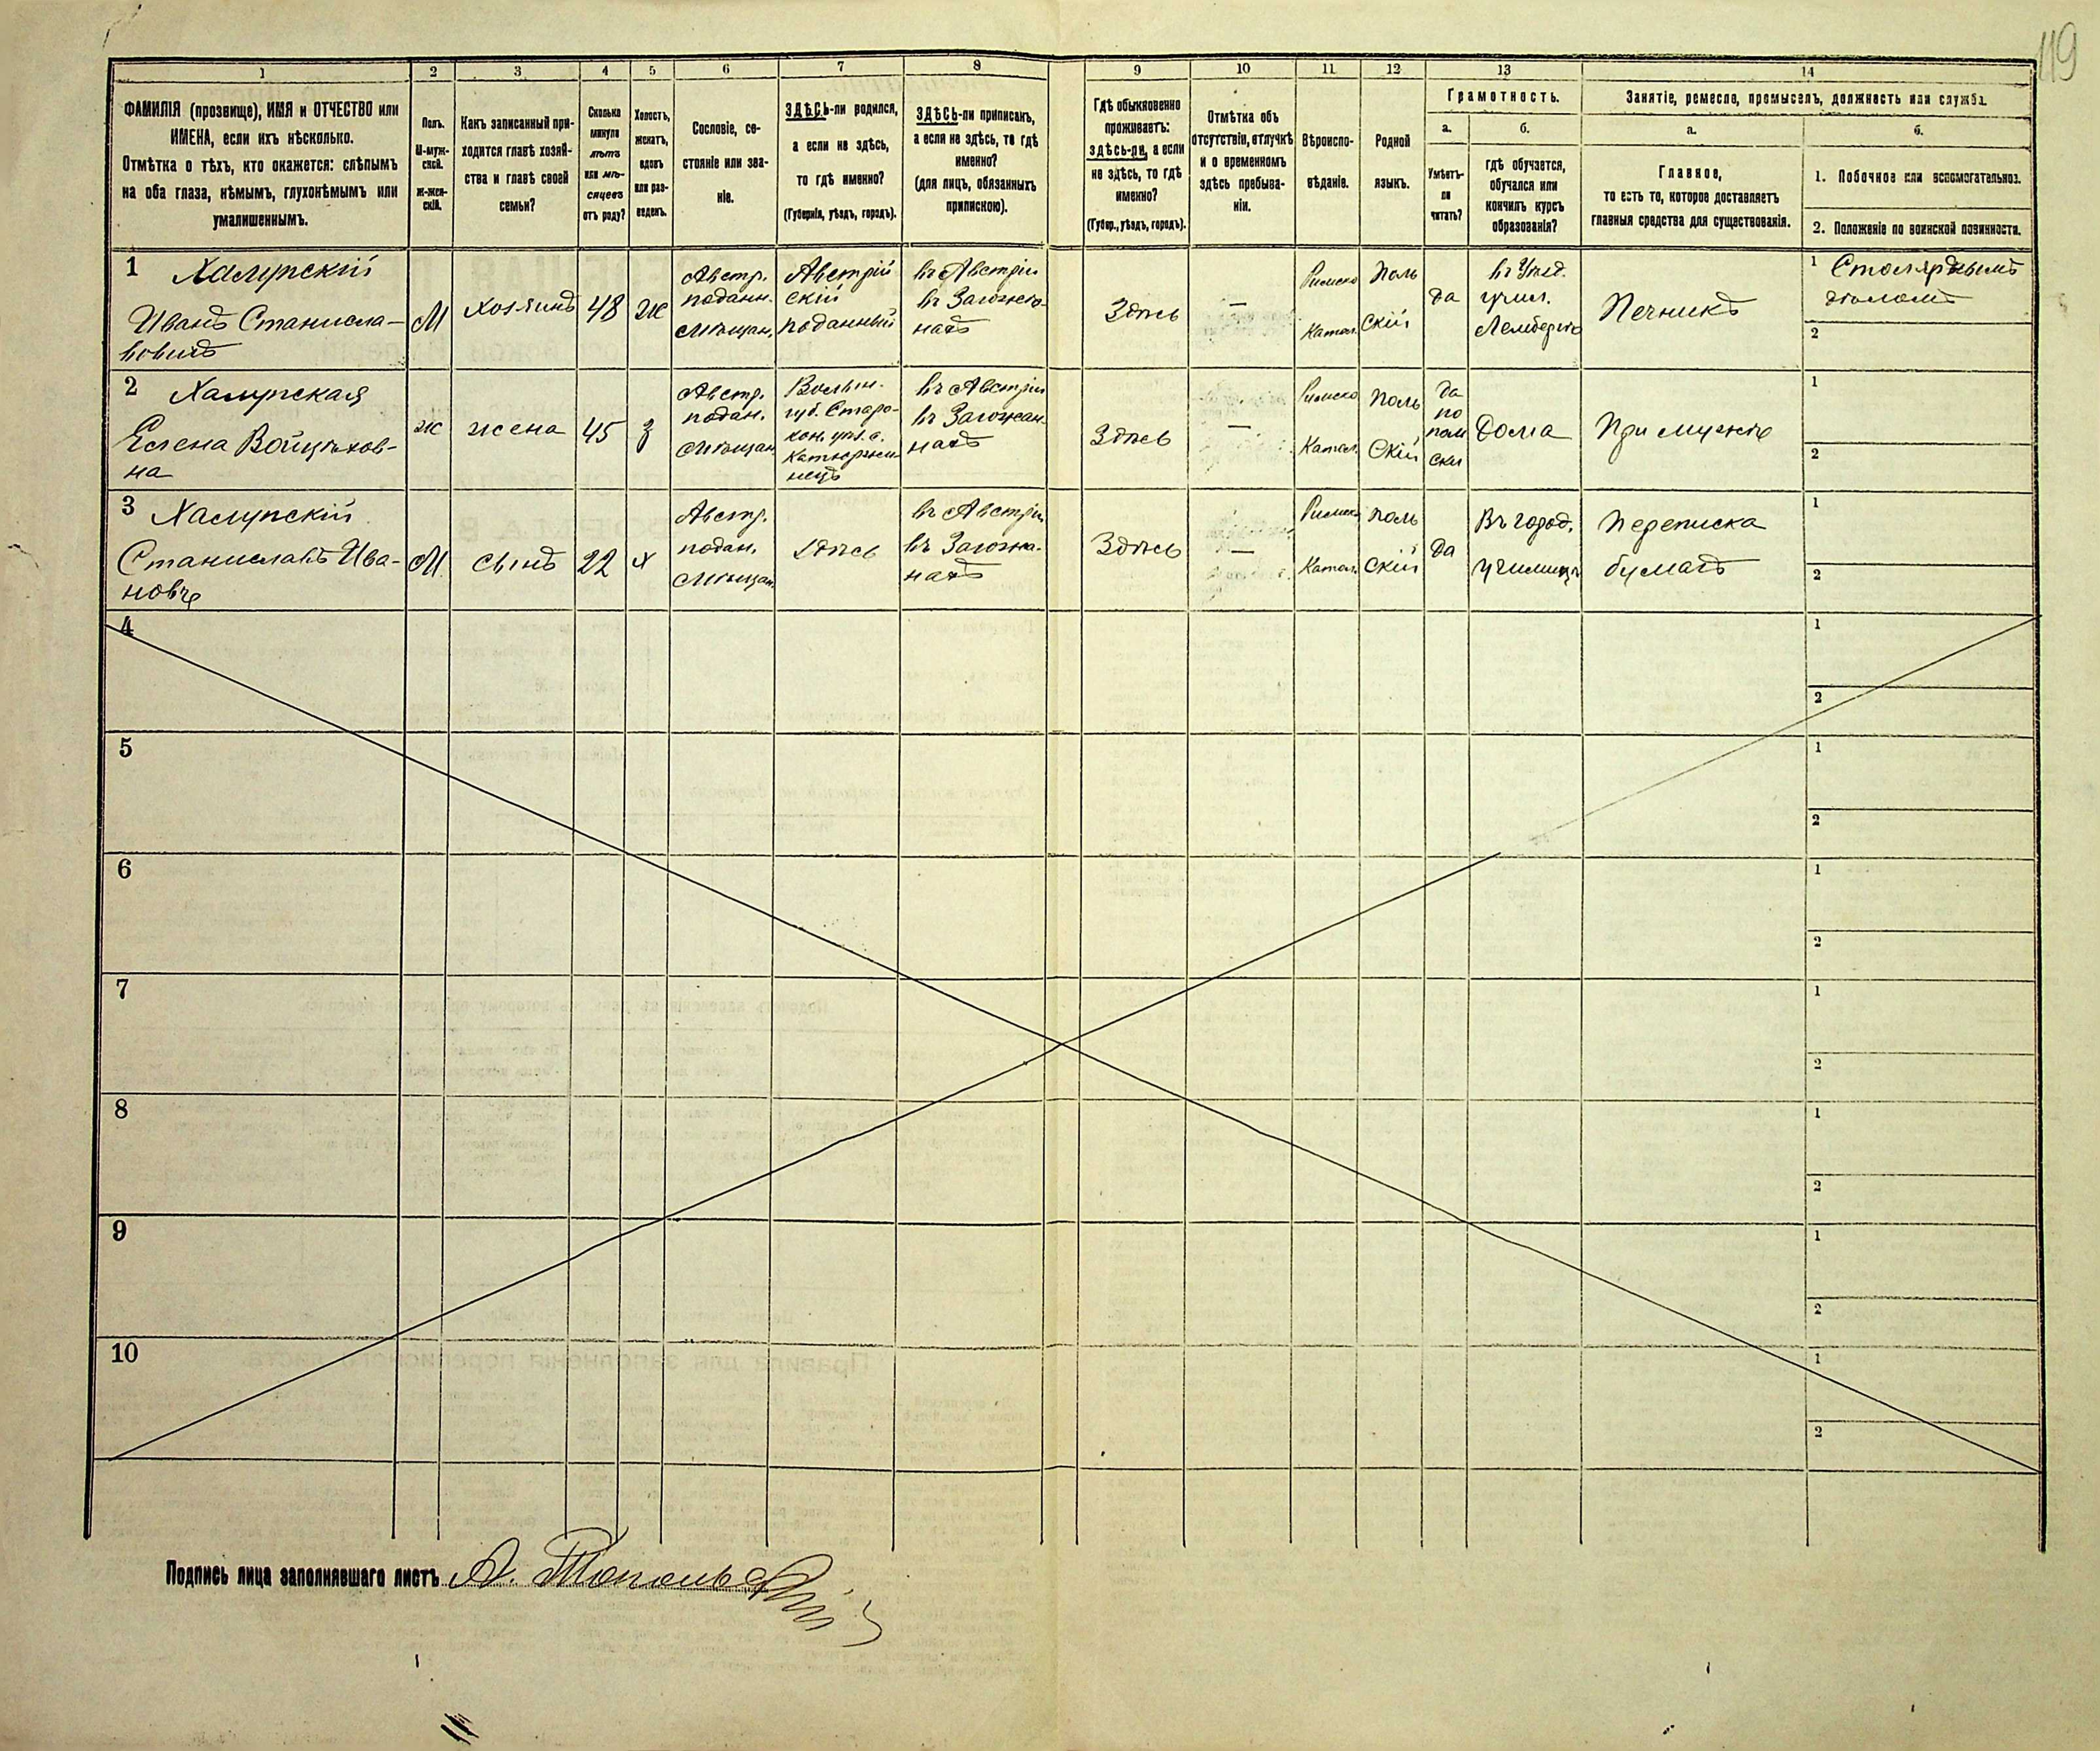 119
1 2 3 4 5 6 7 8 9 10 11 12 13 14
ФАМИЛІЯ (прозвище), ИМЯ и ОТЧЕСТВО или
ИМЕНА, если ихъ нѣсколько.
Отмѣтка о тѣхъ, кто окажется: слѣпымъ
на оба глаза, нѣмымъ, глухонѣмымъ или
умалишеннымъ.
Полъ.
М-муж-
ской.
ж-жен-
скій.
Какъ записанный при-
ходится главѣ хозяй-
ства и главѣ своей
семьи?
Сколько
минуло
лѣтъ
или мѣ-
сяцевъ
отъ роду?
Холостъ,
женатъ,
вдовъ
или раз-
веденъ.
Сословіе, со-
стояніе или зва-
ніе.
ЗДѢСЬ-ли родился,
а если не здѣсь,
то гдѣ именно?
(Губернія, уѣздъ, городъ).
ЗДѢСЬ-ли приписанъ,
а если не здѣсь, то гдѣ
именно?
(для лицъ, обязанныхъ
припискою).
Гдѣ обыкновенно
проживаетъ:
здѣсь-ли, а если
не здѣсь, то гдѣ
именно?
(Губер., уѣздъ, городъ).
Отмѣтка объ
отсутствіи, отлучкѣ
и о временномъ
здѣсь пребыва-
ніи.
Вѣроиспо-
вѣданіе.
Родной
языкъ.
Грамотность.
а.
Умѣетъ-
ли
читать?
б.
гдѣ обучается,
обучался или
кончилъ курсъ
образованія?
Занятіе, ремесло, промыселъ, должность или служба.
а.
Главное,
то есть то, которое доставляетъ
главныя средства для существованія.
б.
1. Побочное или вспомогательное.
2. Положеніе по воинской повинности.
1 Халупскій
Иванъ Станисла-
вовичъ
М
хозяинъ
48
ж
Австр.
поданн.
Мѣщан.
Австрій
скій
поданный
въ Австріи
въ
Здѣсь
—
Римско
Катол.
Поль
скій
да
въ Уѣзд.
учил.
Лемберга
Печникъ
1 Столярнымъ
дѣломъ
2
2 Халупская
Елена Войцѣхов-
на
ж
жена
45
з
Австр.
подан.
Мѣщан.
Волын.
губ. Старо-
кон. уѣз. с.
въ Австріи
въ
Здѣсь
—
Римско
Катол.
Поль
скій
да
по
поль
ски
Дома
При мужѣ
1
2
3 Халупскій
Станиславъ Ива-
новъ
М
сынъ
22
х
Австр.
подан.
Мѣщан.
Здѣсь
въ Австріи
въ
Здѣсь
—
Римско
Катол.
Поль
скій
да
Въ город.
училищѣ
Переписка
бумагъ
1
2
4
1
2
5
1
2
6
1
2
7
1
2
8
1
2
9
1
2
10
1
2
Подпись лица заполнявшаго листъ А. Топольскій